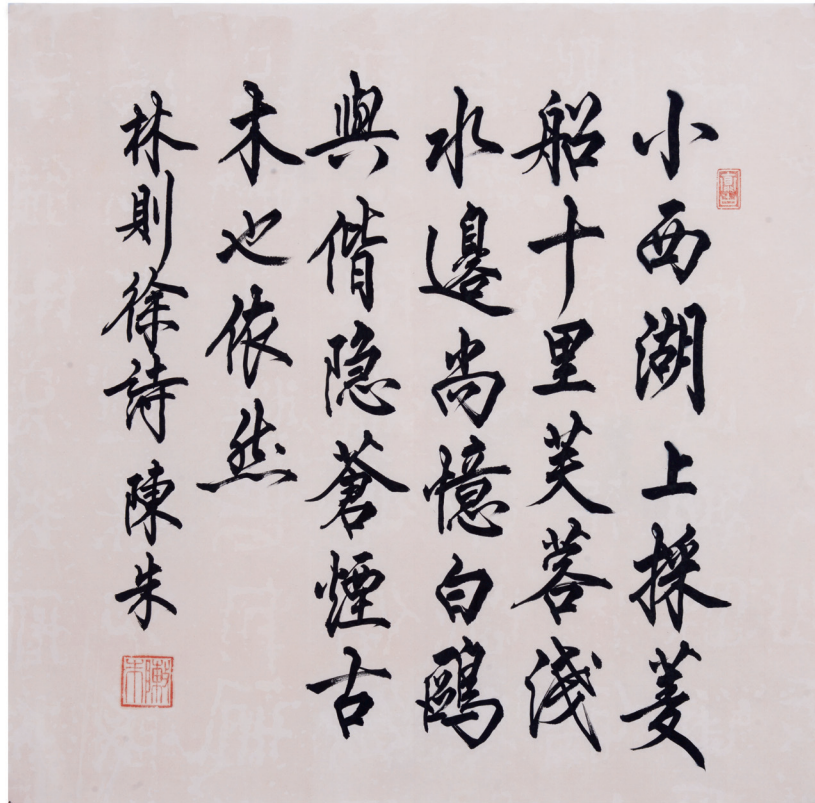 小西湖上採菱
船十里芙蓉淺
水邊尚憶白鷗
與偕隐蒼煙古
木也依然
林則徐詩陳朱